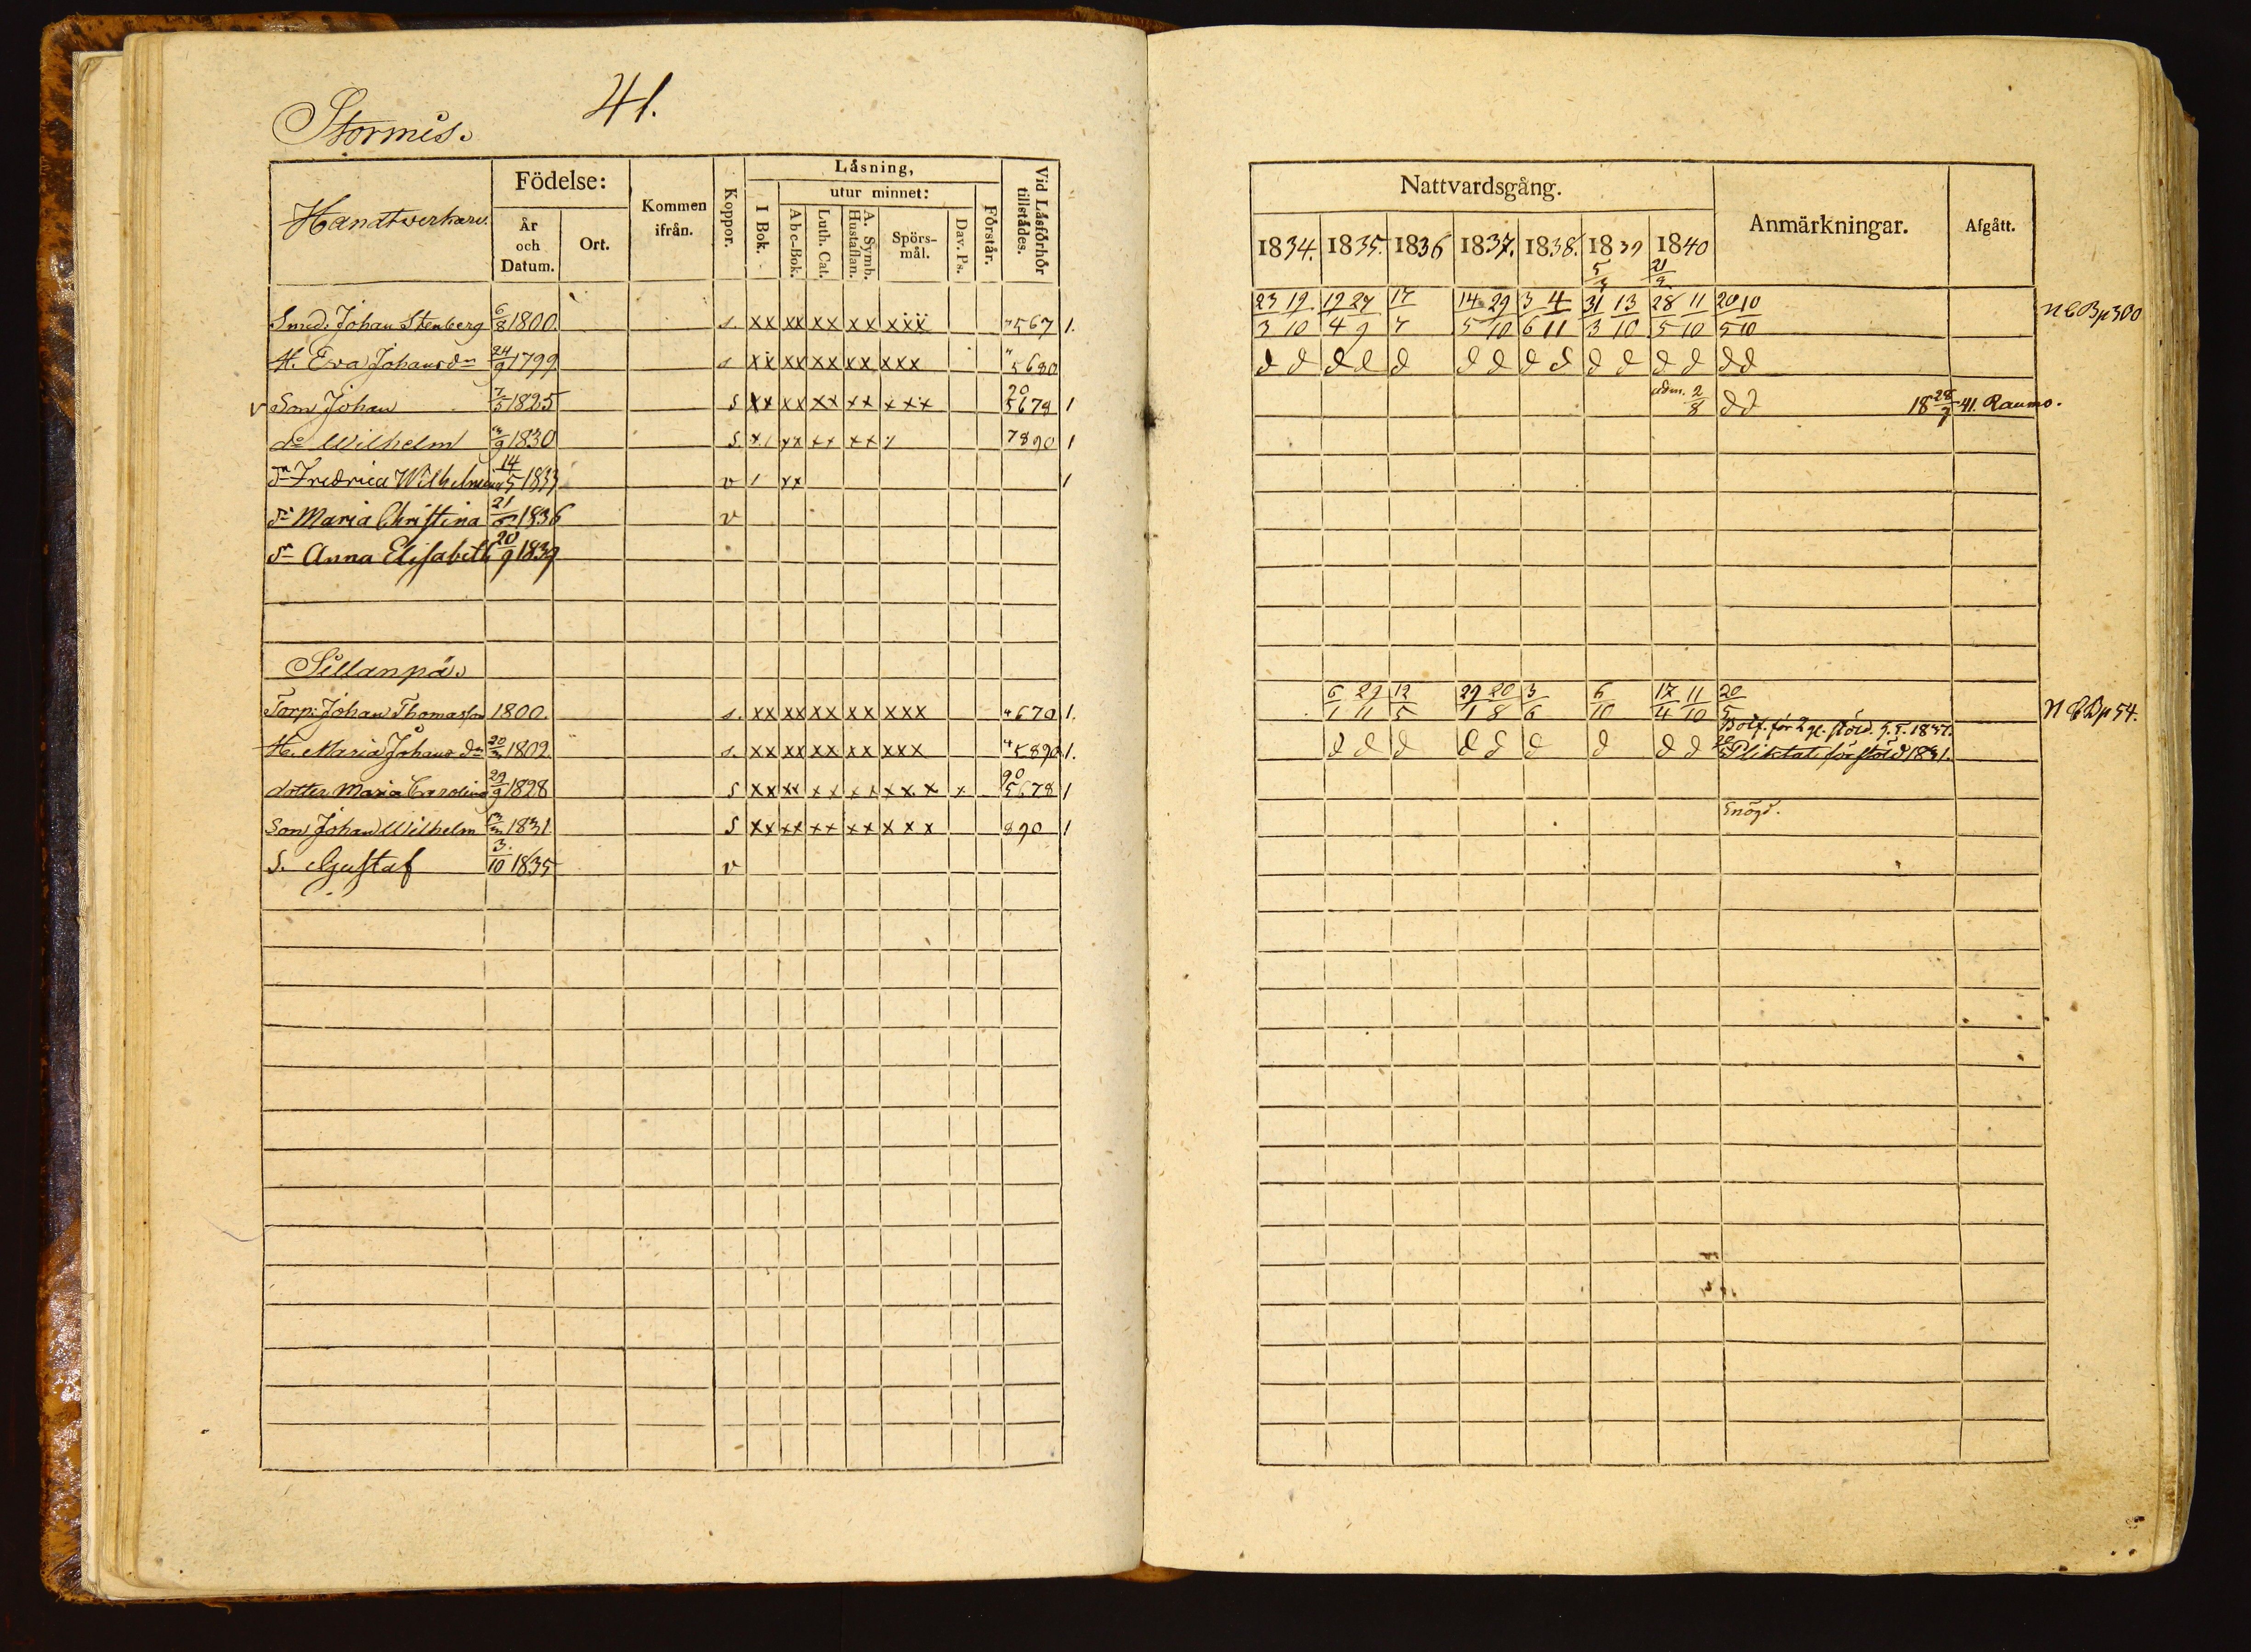 41.
Stormis.
Handtverkare.
Födelse:
År och Datum.
Ort.
Kommen ifrån.
Koppor.
Läsning,
I Bok.
utur minnet:
Abc-Bok.
Luth. Cat.
A. Symb. Hustaflan.
Spörsmål.
Dav. Ps.
Förstår.
Vid Läsförhör tillstädes.
Smed. Johan Stenberg 6/8 1800. s. xx xx xx xx xxx 567 1.
H. Eva Johansdr 24/9 1799 s xx xx xx xx xxx 5680
v Son Johan 7/5 1825 s xx xx xx xx xxx 20 5678 1
do Wilhelm 1830 s. xx xx xx 7890 1
dr Fredrica Wilhelmina 14/5 1833 v / xx 1
dr Maria Christina 1836 v
dr Anna Elisabeth 20/9 1839
Sillanpä.
Torp: Johan Thomasson 1800. s. xx xx xx xx xxx 670 1.
H. Maria Johansdr 20/3 1802. s. xx xx xx xx xxx 5890 1.
dotter Maria Carolina 29/9 1828 s xx xx xx xx xxx x 90 5678 1
Son Johan Wilhelm 1831. s xx xx xx xx xxx 890 1
S. Gustaf 3/10 1835 v
Nattvardsgång.
Anmärkningar.
Afgått.
1834. 1835. 1836 1837. 1838. 1839 1840
23/3 19/10 17/7 14/5 29/10 3/6 4/11 31/3 13/10 28/5 11/10 20/5 10/10 N C B p 300
d d d d d d d d d d d d d d d
adm. 2/8 d d 18 28/7 41. Raumo.
6/1 29/11 12/5 29/1 20/8 3/6 6/10 17/4 11/10 20/5 N C D p 54.
Bötf. för 2 g. stöld. 1837.
d d d d d d d d d Pliktat för stöld 1831.
Enögd.